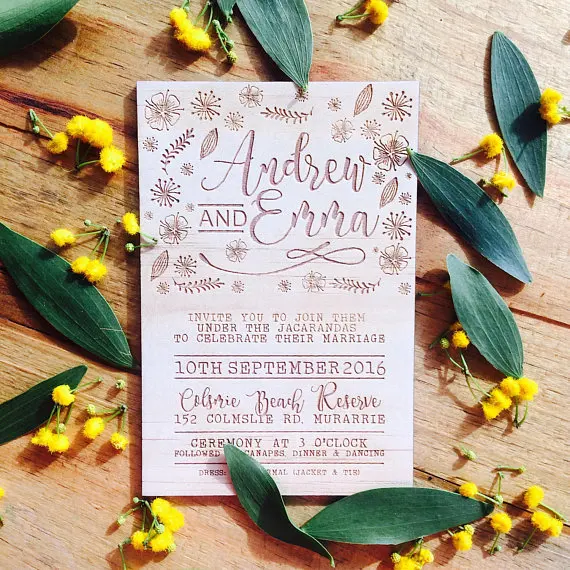 Andrew
AND Emma
INVITE YOU TO JOIN THEM
UNDER THE JACARANDAS
TO CELEBRATE THEIR MARRIAGE
10TH SEPTEMBER 2016
Colsmie Beach Reserve
152 COLMSLIE RD, MURARRIE
CEREMONY AT 3 O'CLOCK
FOLLOWED CANAPES, DINNER & DANCING
DRESS (JACKET & TIE)